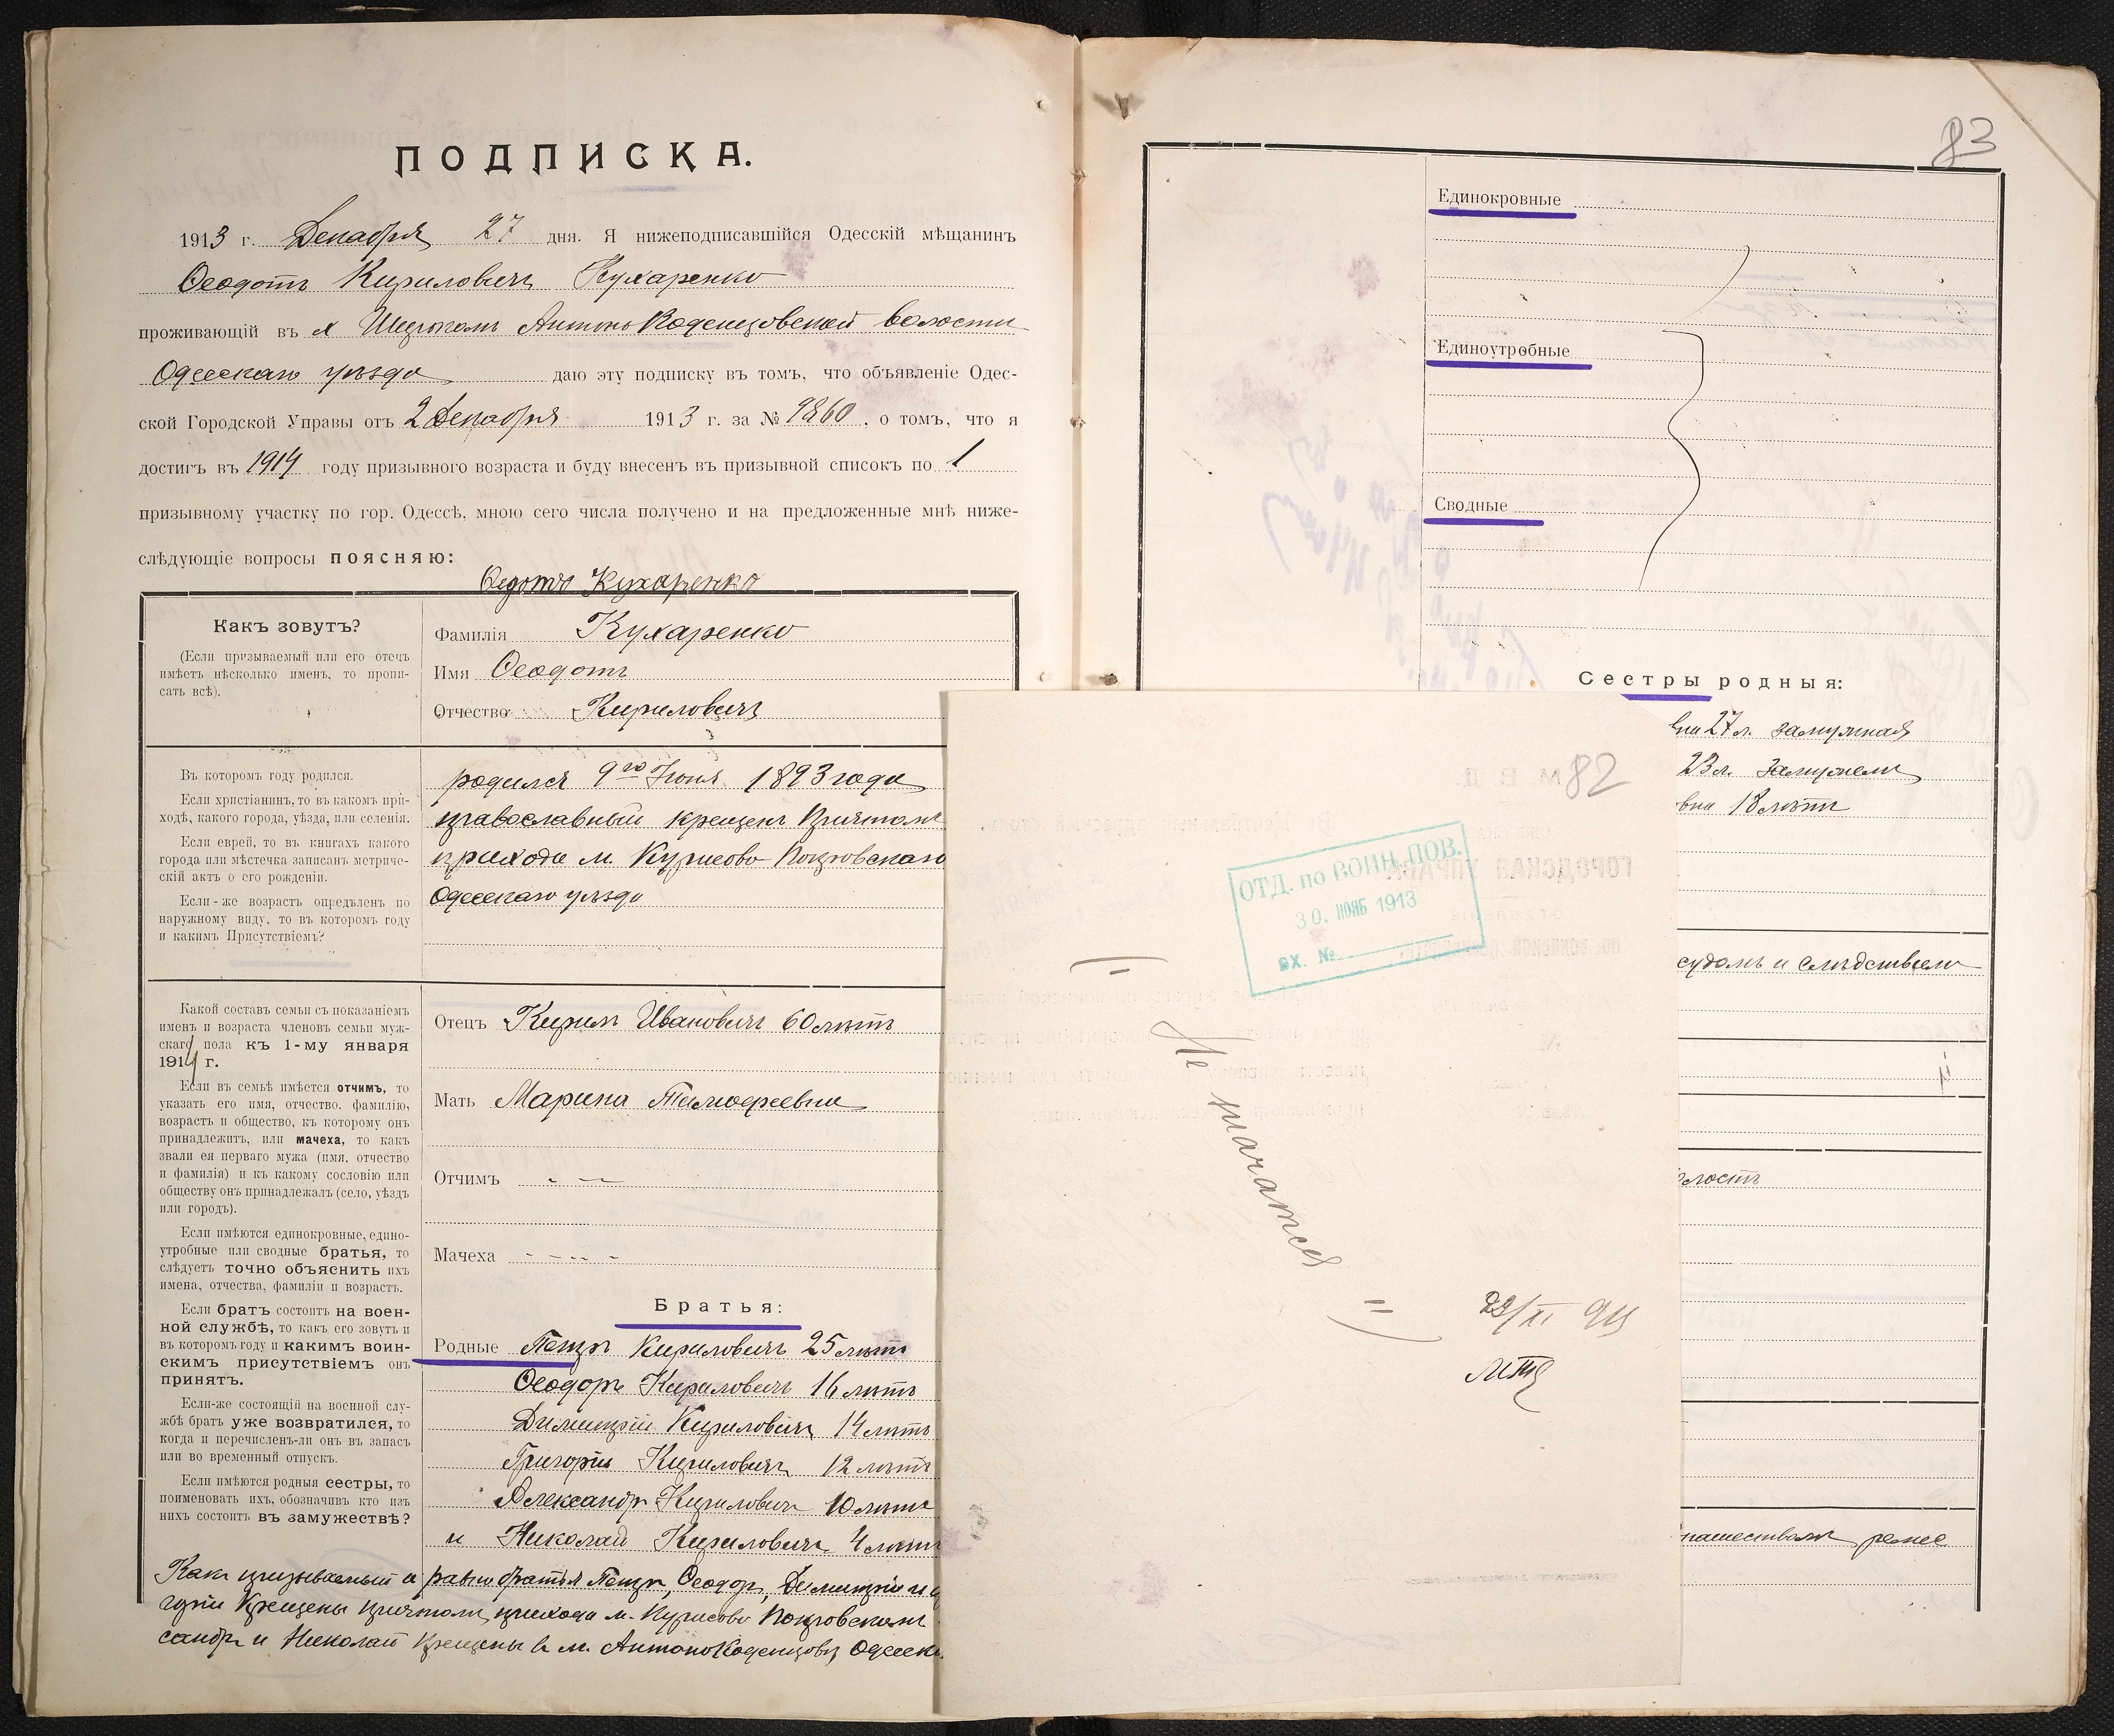 ПОДПИСКА.
1913 г. Декабря 27 дня. Я нижеподписавшійся Одесскій мѣщанинъ
Ѳеодотъ Кириловичъ Кухаренко
проживающій въ х Антоно Кодинцовской волости
Одесскаго уѣзда даю эту подписку въ томъ, что объявленіе Одес-
ской Городской Управы отъ 2 Декабря 1913 г. за № 9860, о томъ, что я
достигъ въ 1914 году призывного возраста и буду внесенъ въ призывной списокъ по 1
призывному участку по гор. Одессѣ, мною сего числа получено и на предложенные мнѣ ниже-
слѣдующіе вопросы поясняю:
Ѳедотъ Кухаренко
Какъ зовутъ?
(Если призываемый или его отецъ
имѣетъ нѣсколько именъ, то пропи-
сать всѣ).
Фамилія Кухаренко
Имя Ѳеодотъ
Отчество Кириловичъ
Въ которомъ году родился.
Если христіанинъ, то въ какомъ при-
ходѣ, какого города, уѣзда, или селенія.
Если еврей, то въ книгахъ какого
города или мѣстечка записанъ метриче-
скій актъ о его рожденіи.
Если-же возрастъ опредѣленъ по
наружному виду, то въ которомъ году
и какимъ Присутствіемъ?
родился 9го Іюня 1893 года
православный крещенъ причтомъ
прихода м. Курисово-Покровскаго
Одесскаго уѣзда
Какой составъ семьи съ показаніемъ
именъ и возраста членовъ семьи муж-
скаго пола къ 1-му января
1914 г.
Если въ семьѣ имѣется отчимъ, то
указать его имя, отчество, фамилію,
возрастъ и общество, къ которому онъ
принадлежитъ, или мачеха, то какъ
звали ея перваго мужа (имя, отчество
и фамилія) и къ какому сословію или
обществу онъ принадлежалъ (село, уѣздъ
или городъ).
Если имѣются единокровные, едино-
утробные или сводные братья, то
слѣдуетъ точно объяснить ихъ
имена, отчества, фамиліи и возрастъ.
Если братъ состоитъ на воен-
ной службѣ, то какъ его зовутъ и
въ которомъ году и какимъ воин-
скимъ присутствіемъ онъ
принятъ.
Если-же состоящій на военной слу-
жбѣ братъ уже возвратился, то
когда и перечисленъ-ли онъ въ запасъ
или во временный отпускъ.
Если имѣются родныя сестры, то
поименовать ихъ, обозначивъ кто изъ
нихъ состоитъ въ замужествѣ?
Отецъ Кирилъ Ивановичъ 60 лѣтъ
Мать Марина Тимофеевна
Отчимъ - —
Мачеха - - - -
Братья:
Родные Петръ Кириловичъ 25 лѣтъ
Ѳеодоръ Кириловичъ 16 лѣтъ
Димитрій Кириловичъ 14 лѣтъ
Григорій Кириловичъ 12 лѣтъ
Александръ Кириловичъ 10 лѣтъ
и Николай Кириловичъ 4 лѣтъ
Какъ призываемый а равно братья Петръ, Ѳеодоръ, Димитрій и
горій крещены причтомъ прихода м. Курисово Покровскаго
сандръ и Николай крещены в м. Антоно Кодинцовѣ Одесск
83
Единокровные
Единоутробные
Сводные
Сестры родныя:
вна 27 л. замужняя
23 л. замужемъ
вна 18 лѣтъ
судомъ и слѣдствіемъ
олость
ремесе
82
ОТД. по ВОИН. ПОВ.
30. НОЯБ 1913
ВХ. №
" Не значатся "